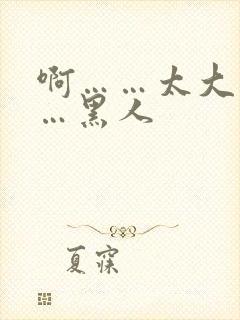 啊……太大
…黑人
夏寐